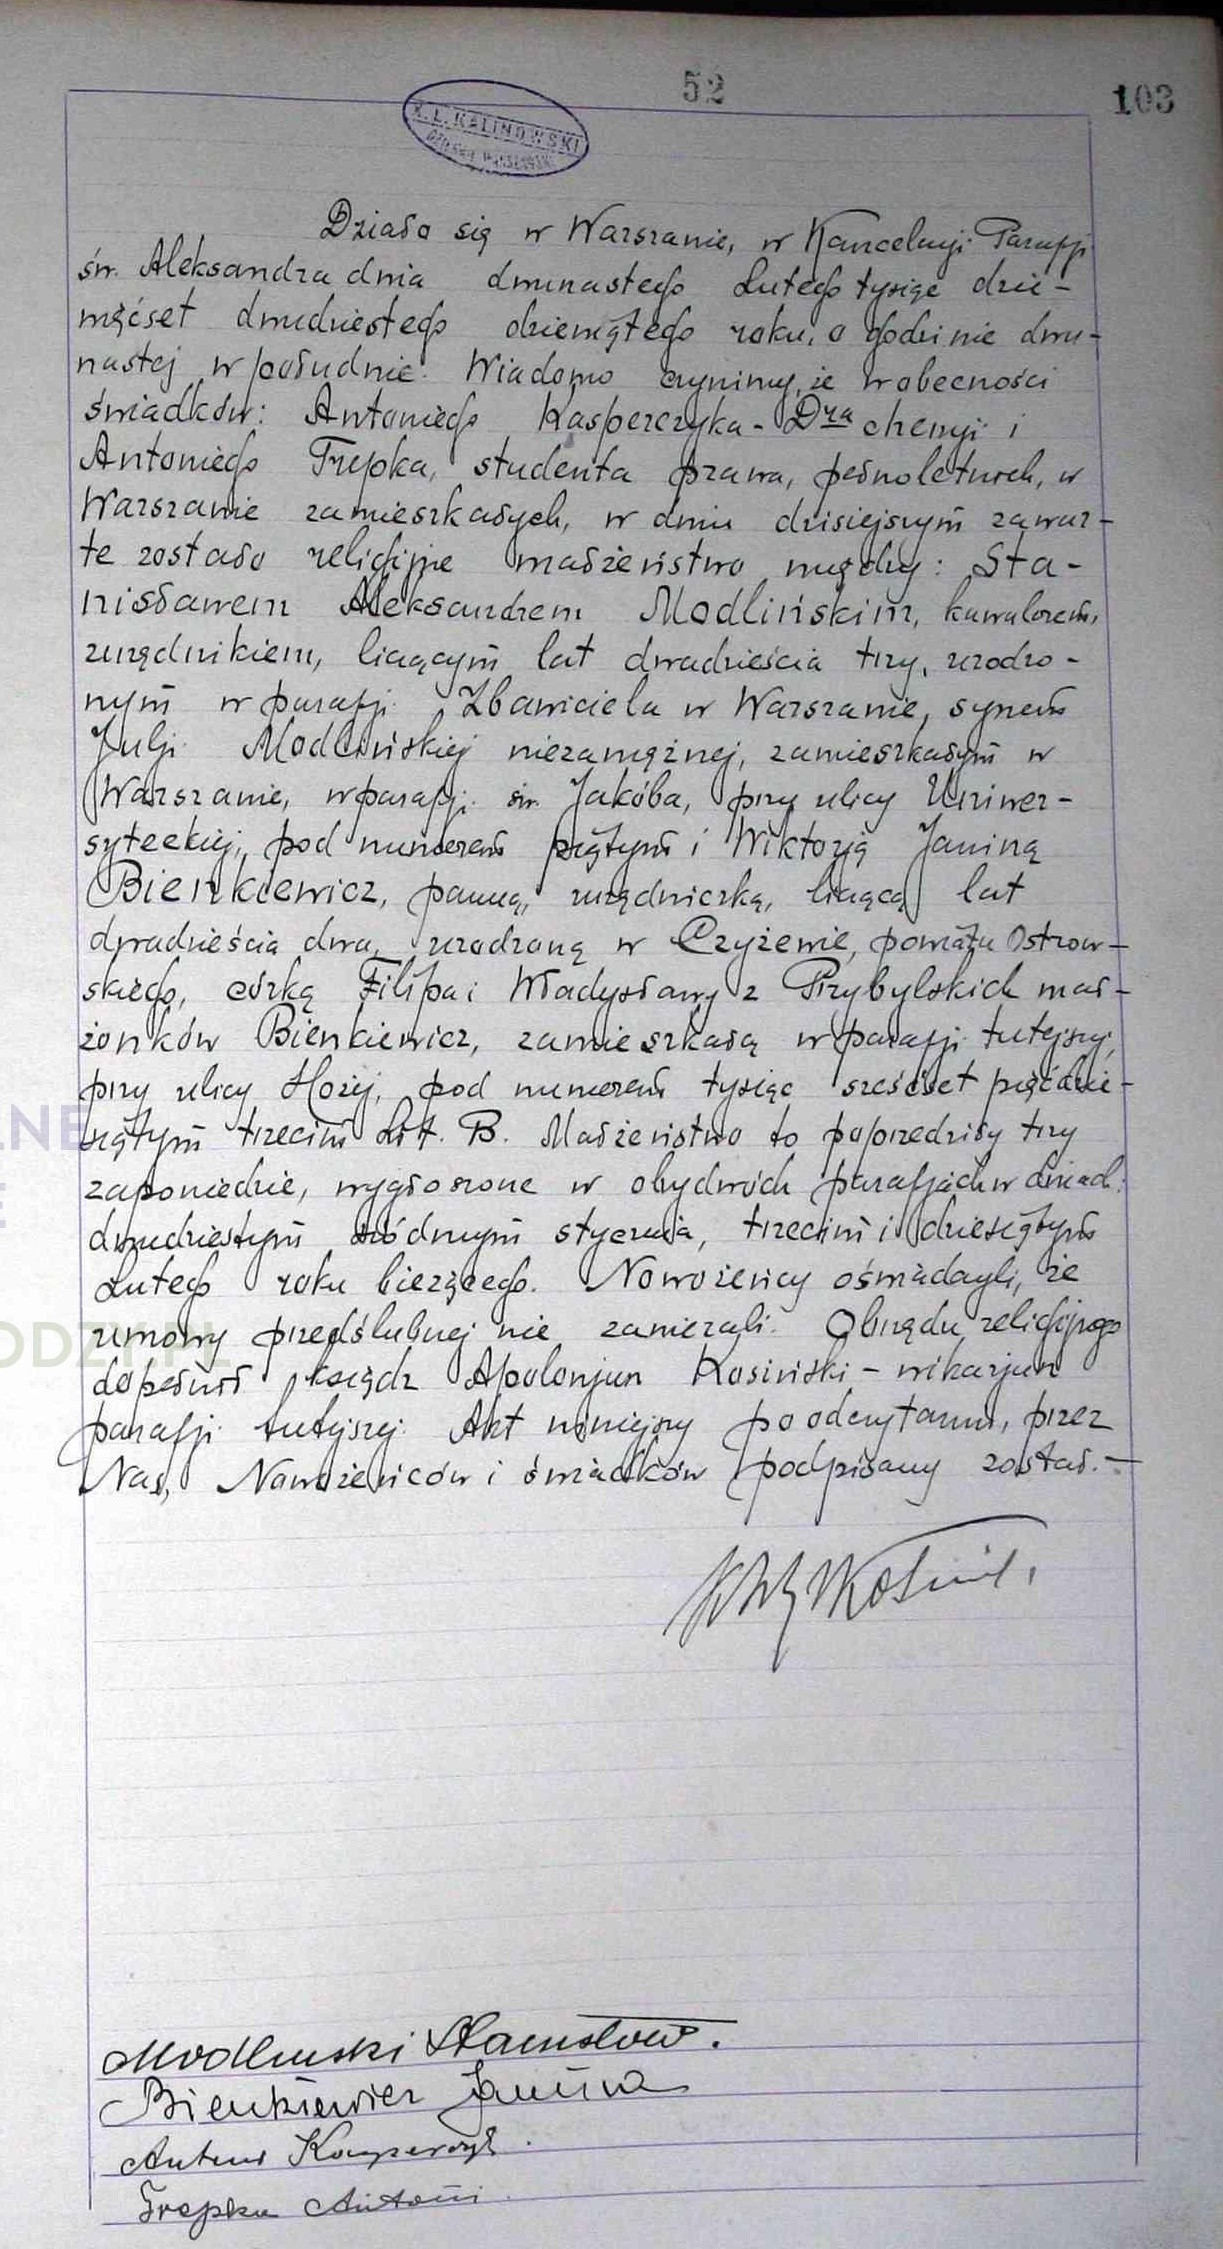 52
103
K. L. KALINOWSKI
Działo się w Warszawie, w Kancelarji Parafji
św. Aleksandra dnia dwunastego Lutego tysiąc dzie-
więćset dwudziestego dziewiątego roku, o godzinie dwu-
nastej w południe. Wiadomo czynimy, że w obecności
świadków: Antoniego Kasperczyka - Dra chemji i
Antoniego Trepka, studenta prawa, pełnoletnich, w
Warszawie zamieszkałych, w dniu dzisiejszym zawar-
te zostało religijne małżeństwo między: Sta-
nisławem Aleksandrem Modlińskim, kawalerem,
urzędnikiem, liczącym lat dwadzieścia trzy, urodzo-
nym w parafji Zbawiciela w Warszawie, synem
Julji Modlińskiej niezamężnej, zamieszkałym w
Warszawie, w parafji św. Jakóba, przy ulicy Uniwer-
syteckiej, pod numerem piątym i Wiktorją Janiną
Bienkiewicz, panną, urzędniczką, liczącą lat
dwadzieścia dwa, urodzoną w Czyżewie, powiatu Ostrow-
skiego, córką Filipa i Władysławy z Przybylskich mał-
żonków Bienkiewicz, zamieszkałą w parafji tutejszej,
przy ulicy Hożej, pod numerem tysiąc sześćset pięćdzie-
siątym trzecim Lit. B. Małżeństwo to poprzedziły trzy
zapowiedzie, wygłoszone w obydwóch parafjach w dniach:
dwudziestym siódmym stycznia, trzecim i dziesiątym
Lutego roku bieżącego. Nowożeńcy oświadczyli, że
umowy przedślubnej nie zawierali. Obrzędu religijnego
dopełnił ksiądz Apolonjusz Kosiński - wikarjusz
parafji tutejszej. Akt niniejszy po odczytaniu, przez
Nas, Nowożeńców i świadków podpisany został. —
Modliński Stanisław.
Bienkiewicz Janina
Antoni Kasperczyk.
Trepka Antoni.